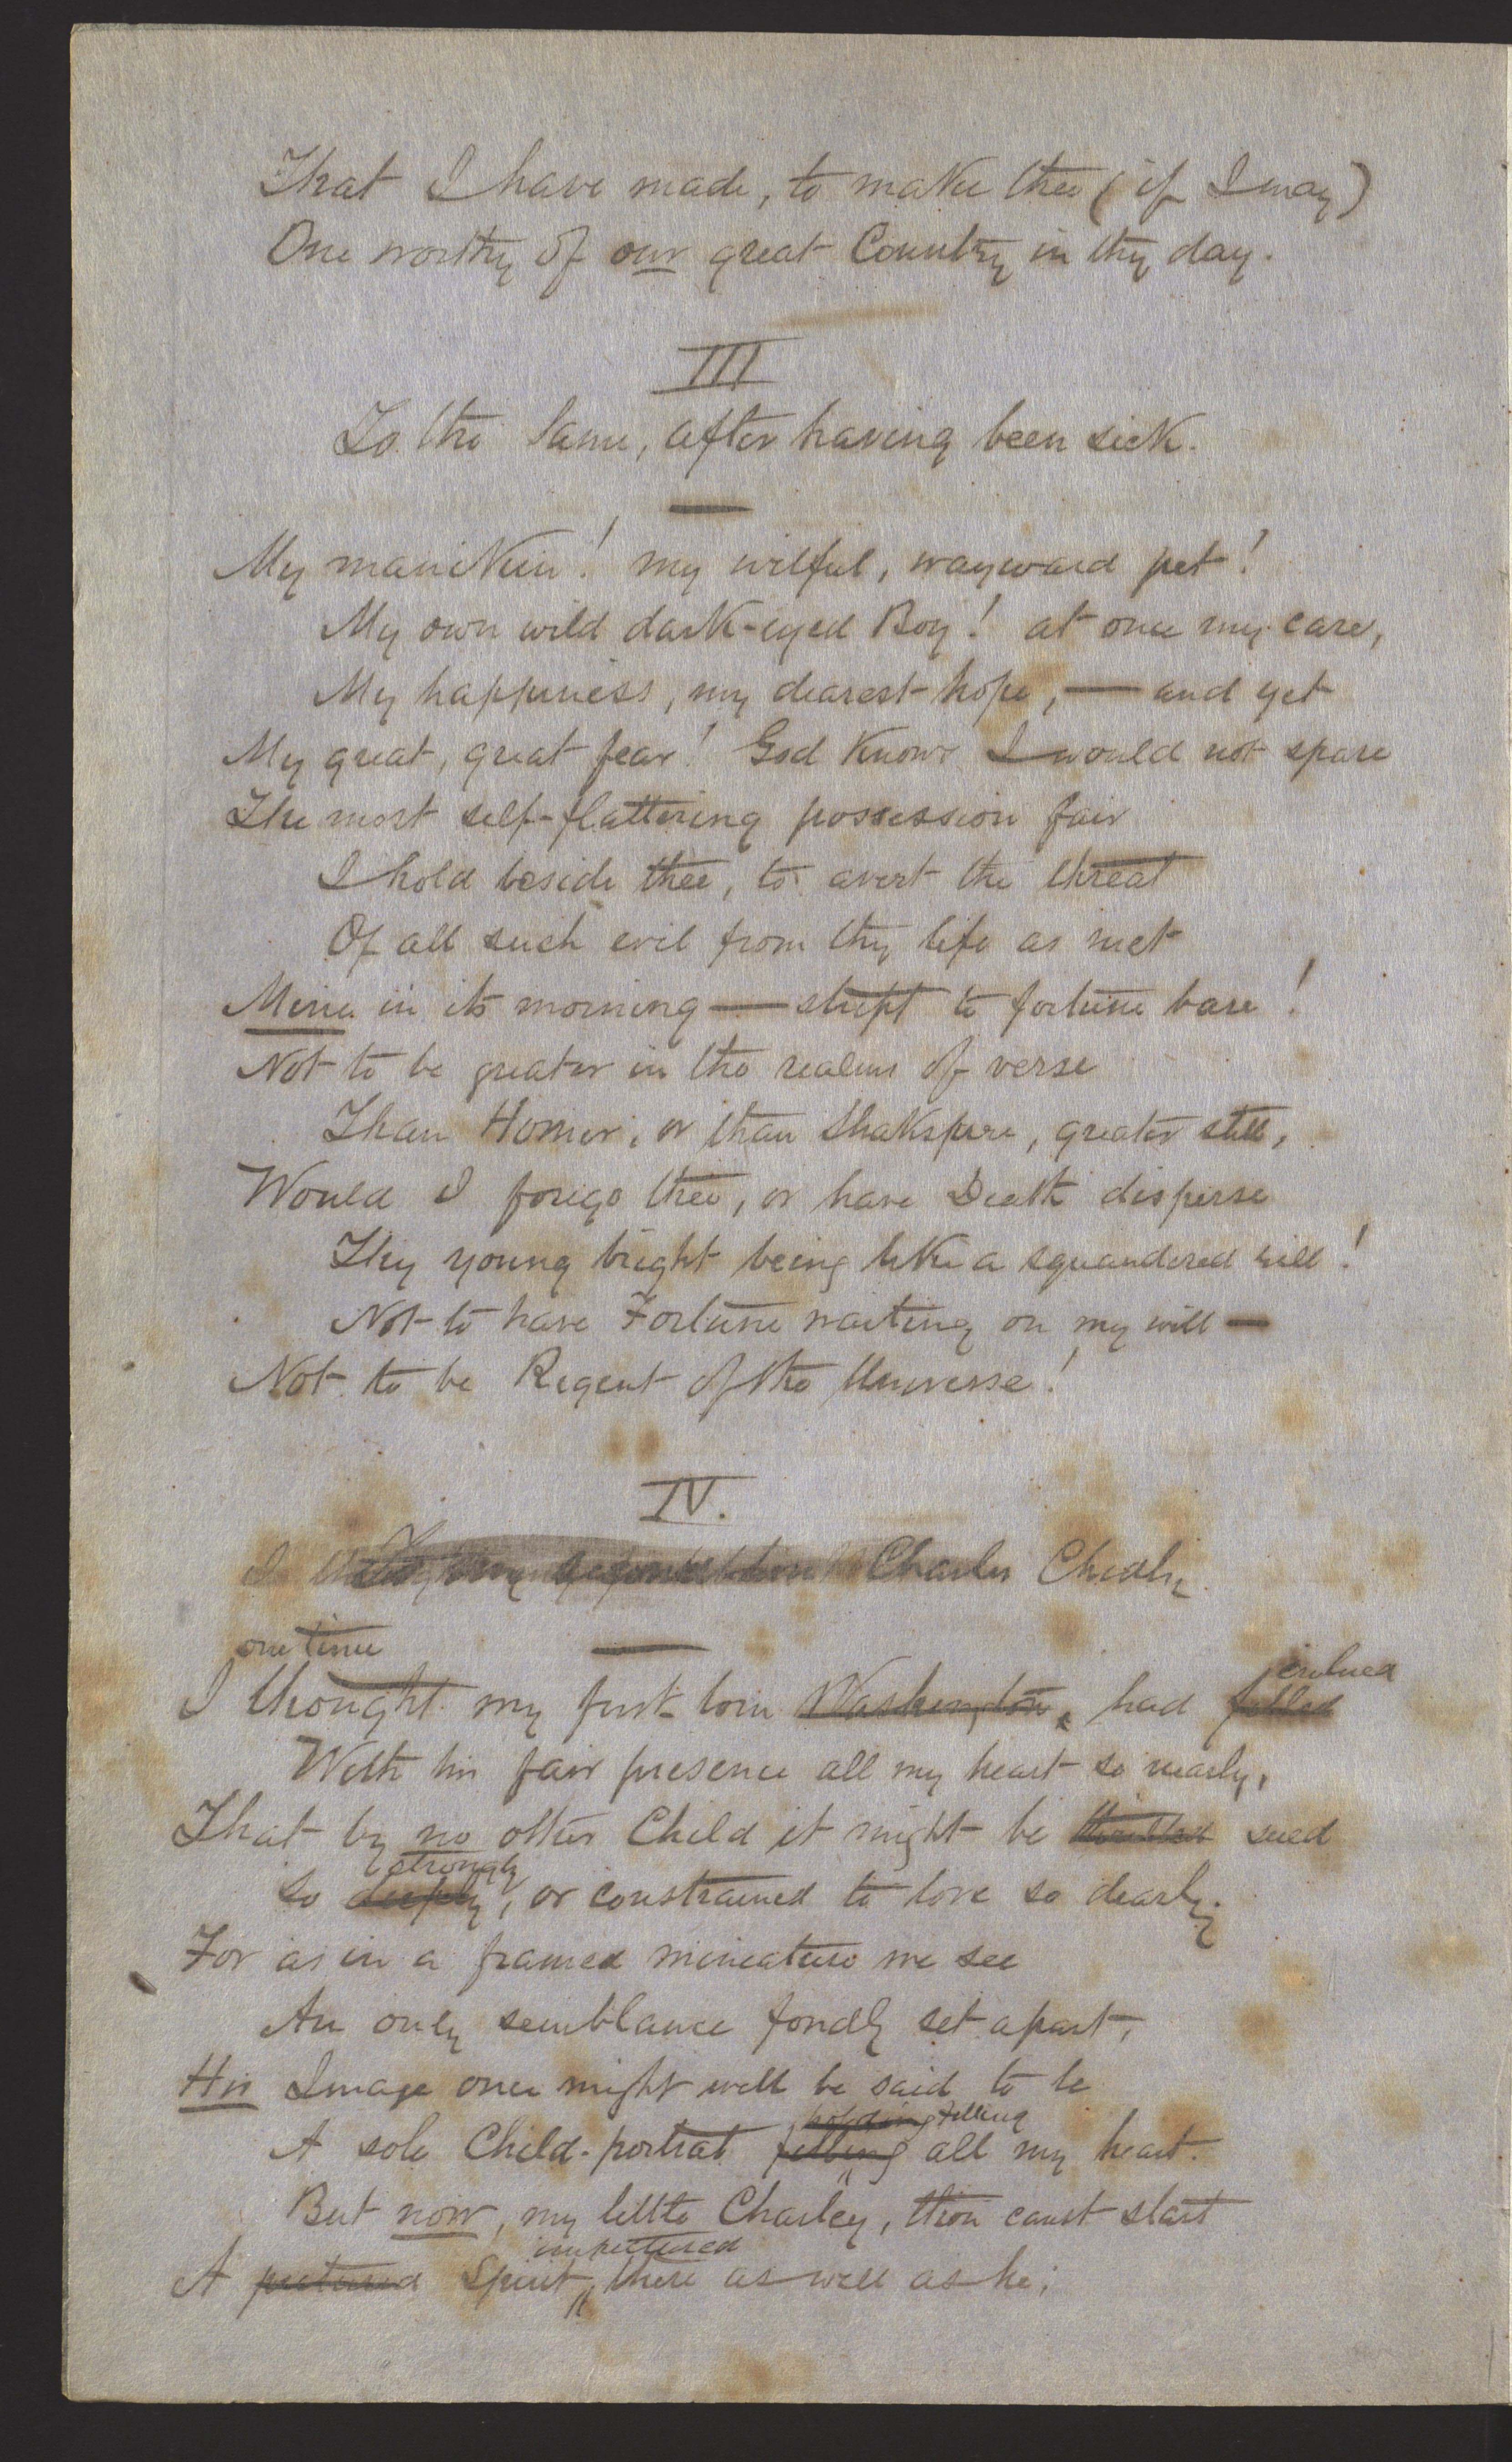 That I have made, to make thee (if I may)
One worthy of our great Country in thy day.
III
To the Same, after having been sick.
My manikin! my wilful, wayward pet!
My own wild dark-eyed Boy! at once my care,
My happiness, my dearest hope, — and yet
My great, great fear! God knows I would not spare
The most self-flattering possession fair
I hold beside thee, to avert the threat
Of all such evil from thy life as met
Mine in its morning — stript to fortune bare!
Not to be greater in the realms of verse
Than Homer, or than Shakspere, greater still,
Would I forego thee, or have Death disperse
Thy young bright being like a squandered rill!
Not to have Fortune waiting on my will —
Not to be Regent of the Universe!
IV.
Charles Chidley
one time
imbued
I thought my first born Washington, had filled
With his fair presence all my heart so nearly,
That by no other Child it might be thrilled sued
strongly
So deeply, or constrained to love so dearly.
For as in a framed mineature we see
An only semblance fondly set apart,
His Image once might well be said to be
holding filling
A sole Child-portrat filling all my heart.
But now, my little Charley, thou canst start
impictured
A pictured Spirit, there as well as he;